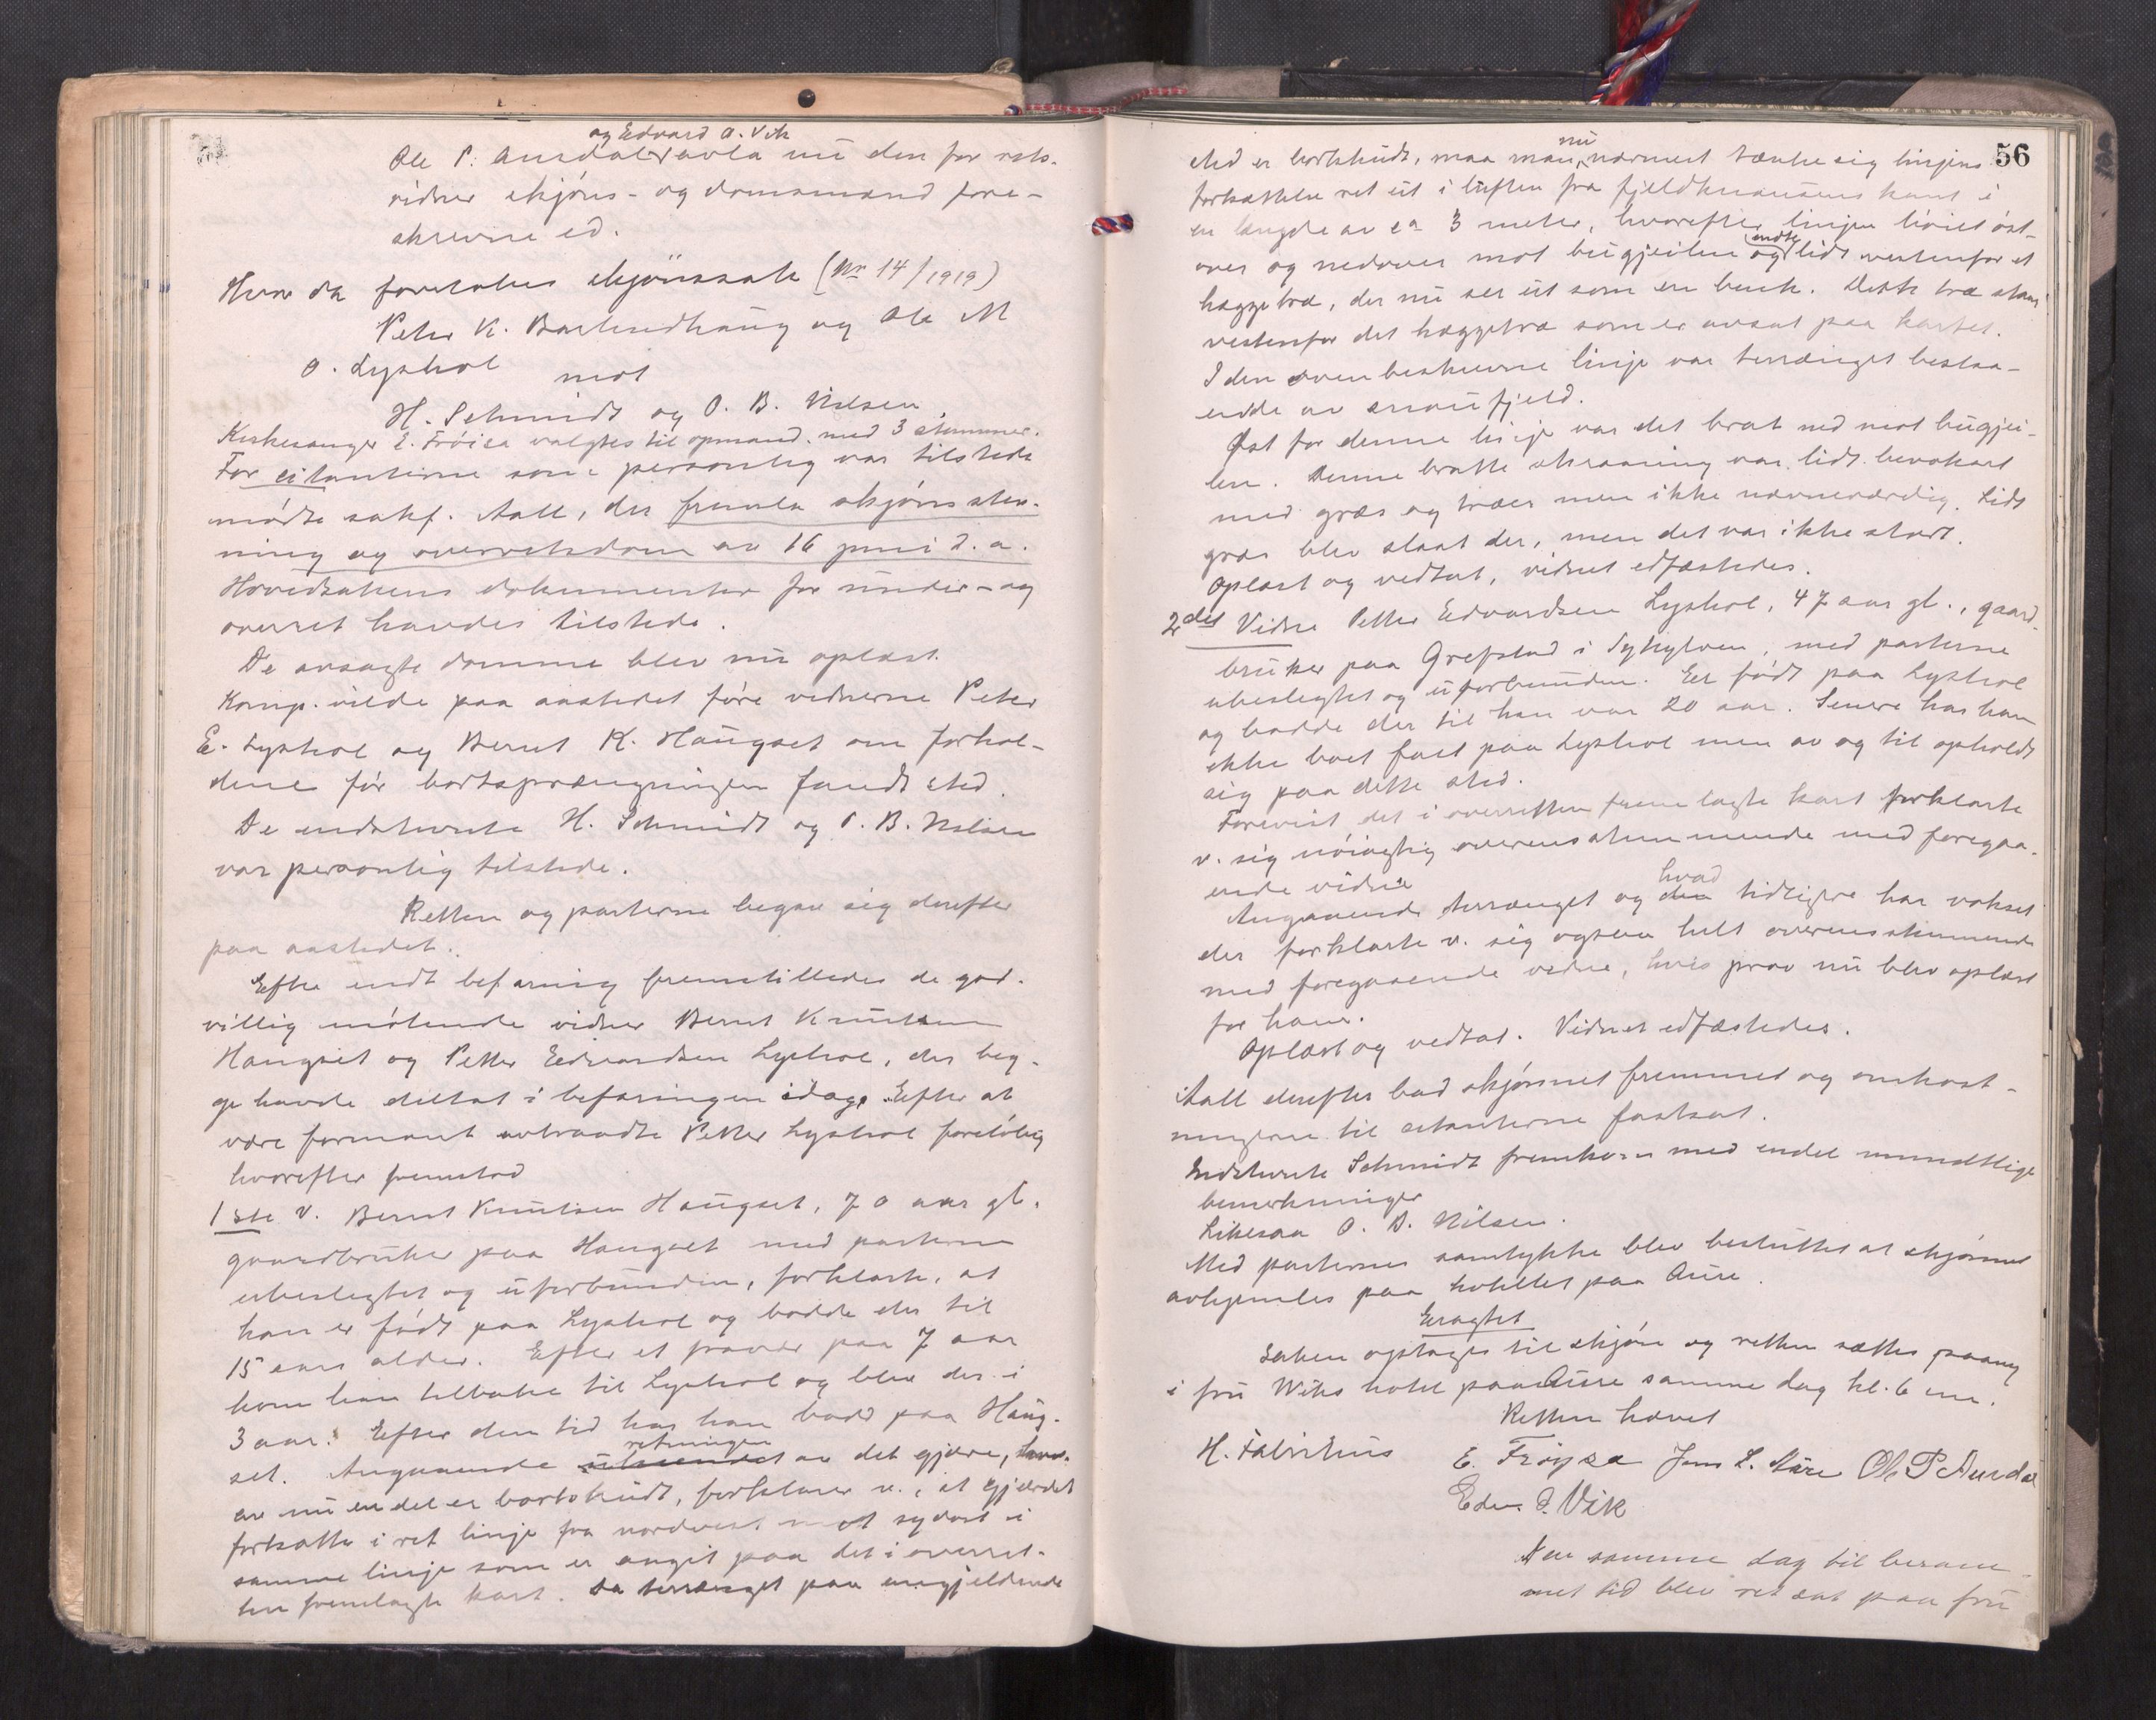 og Edvard O. Vik
Ole P. Aurdal avla nu den for rets-
vidner skjöns- og domsmænd fore-
skrevne ed.
Hvor da foretokes skjönssak (Nr 14/1919)
Peter K. Barlindhaug og Ole M
O. Lyshol
mot
H. Schmidt og O. B. Nilsen.
Kirkesanger E. Fröisa valgtes til opmand med 3 stemmer.
For citanterne som personlig var tilstede
mödte sakf. Aall, der fremla skjöns stev-
ning og overretsdom av 16 juni d. a.
Hovedsakens dokumenter for under- og
overret havdes tilstede.
De avsagte domme blev nu oplæst.
Komp. vilde paa aastedet före vidnerne Peter
E. Lyshol og Bernt K. Haugset om forhol-
dene för bortsprængningen fandt sted.
De indstevnte H. Schmidt og O. B. Nilsen
var personlig tilstede.
Retten og parterne begav sig derefter
paa aastedet.
Efter endt befaring fremstilledes de god-
villig mötende vidner Bernt Knutsen
Haugset og Petter Edvardsen Lyshol, der beg-
ge havde deltat i befaringen idag. Efter at
være formant uttraadte Petter Lyshol forelöbig
hvorefter fremstod
1ste V. Bernt Knutsen Haugset, 70 aar gl.
gaardbruker paa Haugset med parterne
ubeslegtet og uforbunden, forklarte, at
han er födt paa Lyshol og bodde der til
15 aars alder. Efter et fravær paa 7 aar
kom han tilbake til Lyshol og blev der i
3 aar. Efter den tid har han bodd paa Haug-
retningen
set. Angaaende av det gjære, hvor-
av nu en del er bortskudt, forklarer v., at gjærdet
fortsatte i ret linje fra nordvest mot sydost i
samme linje som er angit paa det i overret-
ten fremlagte kart. Da terrænget paa angjeldende
56
nu
sted er bortskudt, maa man nærmest tænke sig linjens
fortsættelse ret ut i luften fra fjeldknausens kant i
en længde av ca 3 meter, hvorefter linjen böiet öst-
endte
over og nedover mot bugjeilen og lidt vestenfor et
hæggetræ, der nu ser ut som en busk. Dette træ staar
vestenfor det hæggetræ som er avsat paa kartet.
I den ovenbeskrevne linje var terrænget bestaa-
ende av snaufjeld.
Öst for denne linje var det brat ned mot bugjei-
len. Denne bratte skraaning var lidt bevokset
med græs og trær men ikke nævneværdig. Lidt
græs blev slaat der, men det var ikke stort.
Oplæst og vedtat, vidnet edfæstedes.
2det Vidne Petter Edvardsen Lyshol, 47 aar gl., gaard-
bruker paa Grefstad i Sykylven, med parterne
ubeslegtet og uforbunden. Er födt paa Lyshol
og bodde der til han var 20 aar. Senere har han
ikke boet fast paa Lyshol men av og til opholdt
sig paa dette sted.
Forevist det i overretten fremlagte kart forklarte
v. sig nöiagtig overensstemmende med foregaa-
ende vidne
hvad
Angaaende terrænget og den tidligere har vokset
der forklarte v. sig ogsaa helt overensstemmende
med foregaaende vidne, hvis prov nu blev oplæst
for ham.
Oplæst og vedtat. Vidnet edfæstedes.
Aall derefter bad skjönnet fremmet og omkost-
ningerne til citanterne fastsat.
Indstevnte Schmidt fremkom med endel mundtlige
bemerkninger
Likesaa O. B. Nilsen.
Med parternes samtykke blev besluttet at skjönnet
avhjemles paa hotellet paa Aure.
Eragtet
Saken optages til skjön og retten sættes paany
i fru Wiks hotel paa Aure samme dag kl. 6 em.
Retten hævet
H. Fabritius E. Fröysa Jens L. Aure Ole P Aurdal
Edv. O. Vik
Aar samme dag til beram-
met tid blev ret sat paa fru